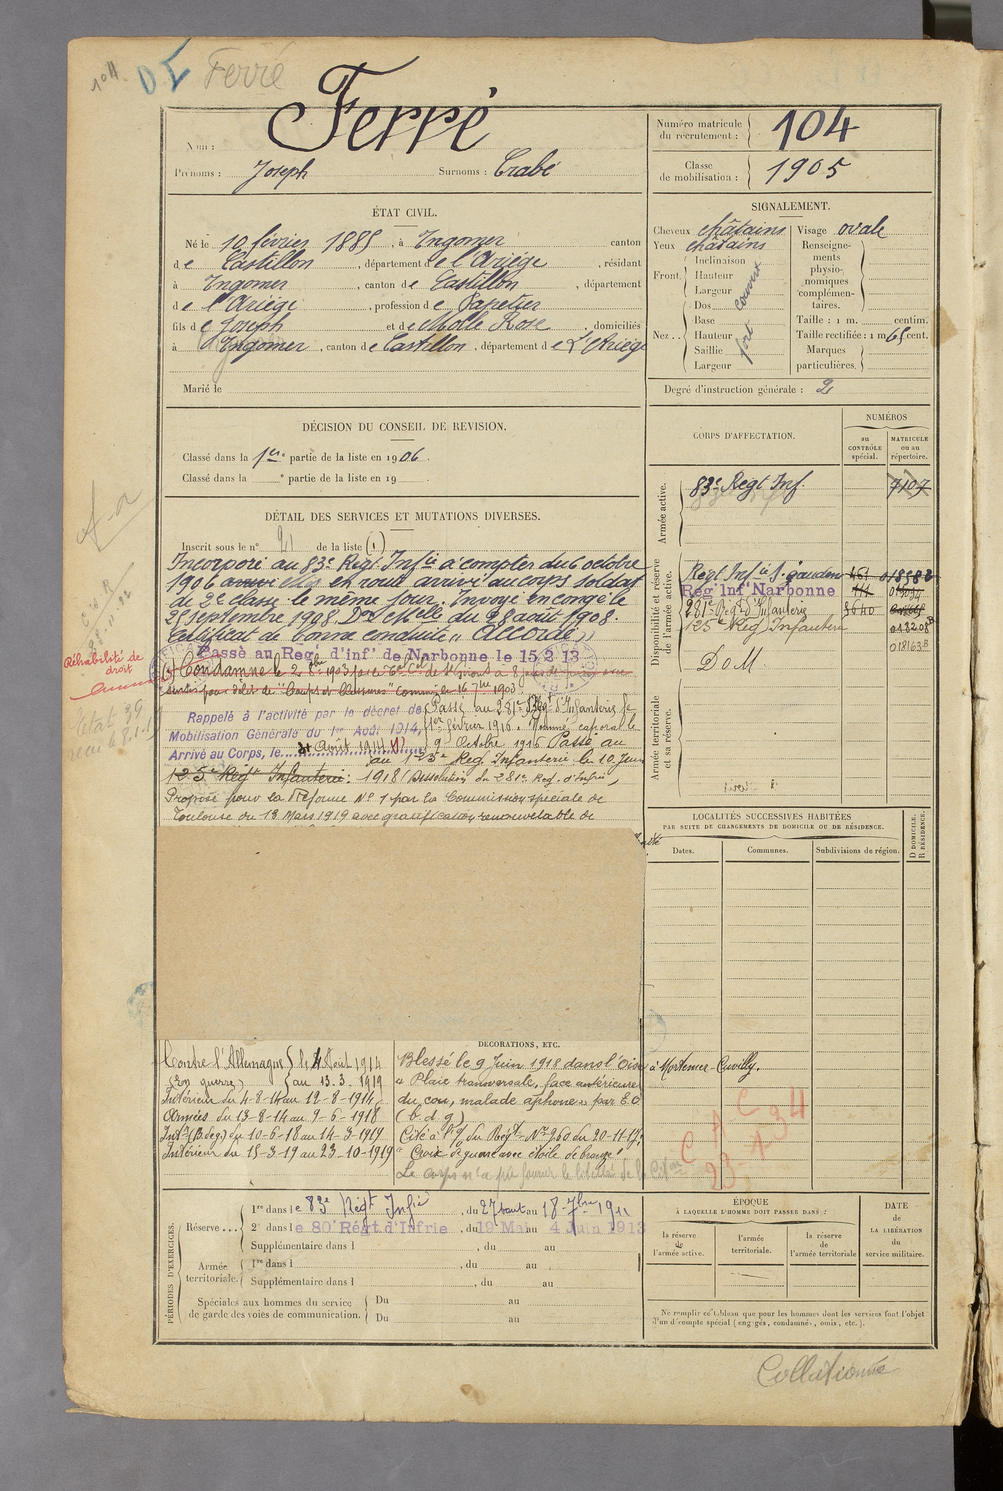 104 Ferré
Nom : Ferré
Prénoms : Joseph Surnoms : Crabé
Numéro matricule du recrutement : 104
Classe de mobilisation : 1905
ÉTAT CIVIL.
Né le 10 février 1885, à Engomer canton
de Castillon, département de l'Ariège, résidant
à Engomer, canton de Castillon, département
de l'Ariège, profession de Papetier
fils de Joseph et de Molle Rose, domiciliés
à Engomer, canton de Castillon, département de l'Ariège
Marié le
SIGNALEMENT.
Cheveux châtains
Yeux châtains
Front
Inclinaison
Hauteur
Largeur
couvert
Nez
Dos
Base
Hauteur
Saillie
Largeur
fort
Visage ovale
Renseignements physionomiques complémentaires.
Taille : 1 m. centim.
Taille rectifiée : 1 m 65 cent.
Marques particulières.
Degré d'instruction générale : 2
DÉCISION DU CONSEIL DE REVISION.
Classé dans la 1re partie de la liste en 1906.
Classé dans la e partie de la liste en 19
DÉTAIL DES SERVICES ET MUTATIONS DIVERSES.
Inscrit sous le n° 21 de la liste (1)
Incorporé au 83e Régt Infie à compter du 6 octobre
1906 arrivé et soldat
de 2e classe le même jour. Envoyé en congé le
25 septembre 1908. Don Mlle du 28 août 1908.
Certificat de bonne conduite "Accordé"
Passé au Regt d'inf' de Narbonne le 15 2 13
Réhabilité de droit
Condamné le 1903 par le de St Girons à 8 jours de
pour délit de "Coups et Blessures" commis le 16 7bre 1903.
Rappelé à l'activité par le décret de
Mobilisation Générale du 1er Août 1914,
Arrivé au Corps, le Août 1914
Passé au 281e Régt d'Infanterie le
1er février 1916. Nommé caporal le
9 Octobre 1916 Passé au
au 125e Reg. Infanterie le 10 Juin
125e Regt Infanterie. 1918 (Dissolution du 281e Reg. d'Infie)
Proposé pour la Réforme N° 1 par la Commission spéciale de
Toulouse du 13 Mars 1919 avec gratification renouvelable de
CORPS D'AFFECTATION.
NUMÉROS
au CONTRÔLE spécial.
MATRICULE ou au répertoire.
Armée active.
83e Regt Inf. 7107
Disponibilité et réserve de l'armée active.
Régt Infie St gaudens
Reg Inf Narbonne
281e Régt d'Infanterie
125e Rég Infanterie 018208B
018163B
D o M.
Armée territoriale et sa réserve.
LOCALITÉS SUCCESSIVES HABITÉES
PAR SUITE DE CHANGEMENTS DE DOMICILE OU DE RÉSIDENCE.
Dates. Communes. Subdivisions de région. D DOMICILE. R RÉSIDENCE.
Contre l'Allemagne du 4 Août 1914
(en guerre) au 13.3.1919
Intérieur du 4-8-14 au 12-8-1914
Armées du 13-8-14 au 9-6-1918
Intr (B deg.) du 10-6-18 au 14-3-1919
Intérieur du 15-3-19 au 23-10-1919
DÉCORATIONS, ETC.
Blessé le 9 Juin 1918 dans l'Oise à Mortemer-Cuvilly.
" Plaie transversale, face antérieure
du cou, malade aphone " par E.O
(b d g)
Cité à l'o/ du Régt N° 260 du 20-11-17.
" Croix de guerre avec étoile de bronze"
Le corps n'a pu fournir le libellé de la Citon
PÉRIODES D'EXERCICES.
Réserve
1re dans le 83e Régt Infie, du 27 aout au 18-7bre 1911
2e dans le 80e Régt d'Infrie, du 19 Mai au 4 Juin 1913
Supplémentaire dans l , du au
Armée territoriale.
1re dans l , du au
Supplémentaire dans l , du au
Spéciales aux hommes du service de garde des voies de communication.
Du au
Du au
ÉPOQUE
À LAQUELLE L'HOMME DOIT PASSER DANS :
la réserve de l'armée active.
l'armée territoriale.
la réserve de l'armée territoriale
DATE de la LIBÉRATION du service militaire.
Ne remplir ce tableau que pour les hommes dont les services font l'objet
d'un décompte spécial (engagés, condamnés, omis, etc.).
Collationné